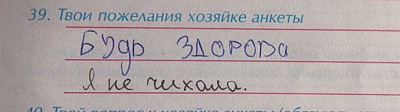 39. Твои пожелания хозяйке анкеты
Будь здорова
Я не чихала.